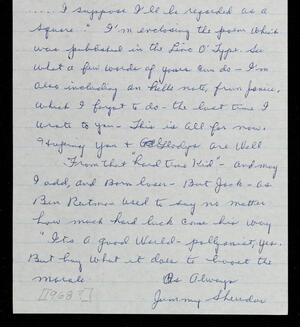 ..... I suppose I'll be regarded as a
square." I'm enclosing the poem which
was published in the Line O' Type. See
what a few words of yours can do - I'm
also including an note, from Janice,
which I forgot to do - the last time I
wrote to you - This is all for now.
Hoping you & Gladys are Well
"From that "hard time Kid" - and may
I add, and Born loser - But Jack - as
Ben Reitman used to say no matter
how much hard luck came his way
"Its a good World - pollyanist, yes.
But boy what it does to boost the
morale.
As Always
Jimmy Sheridan
[1968?]